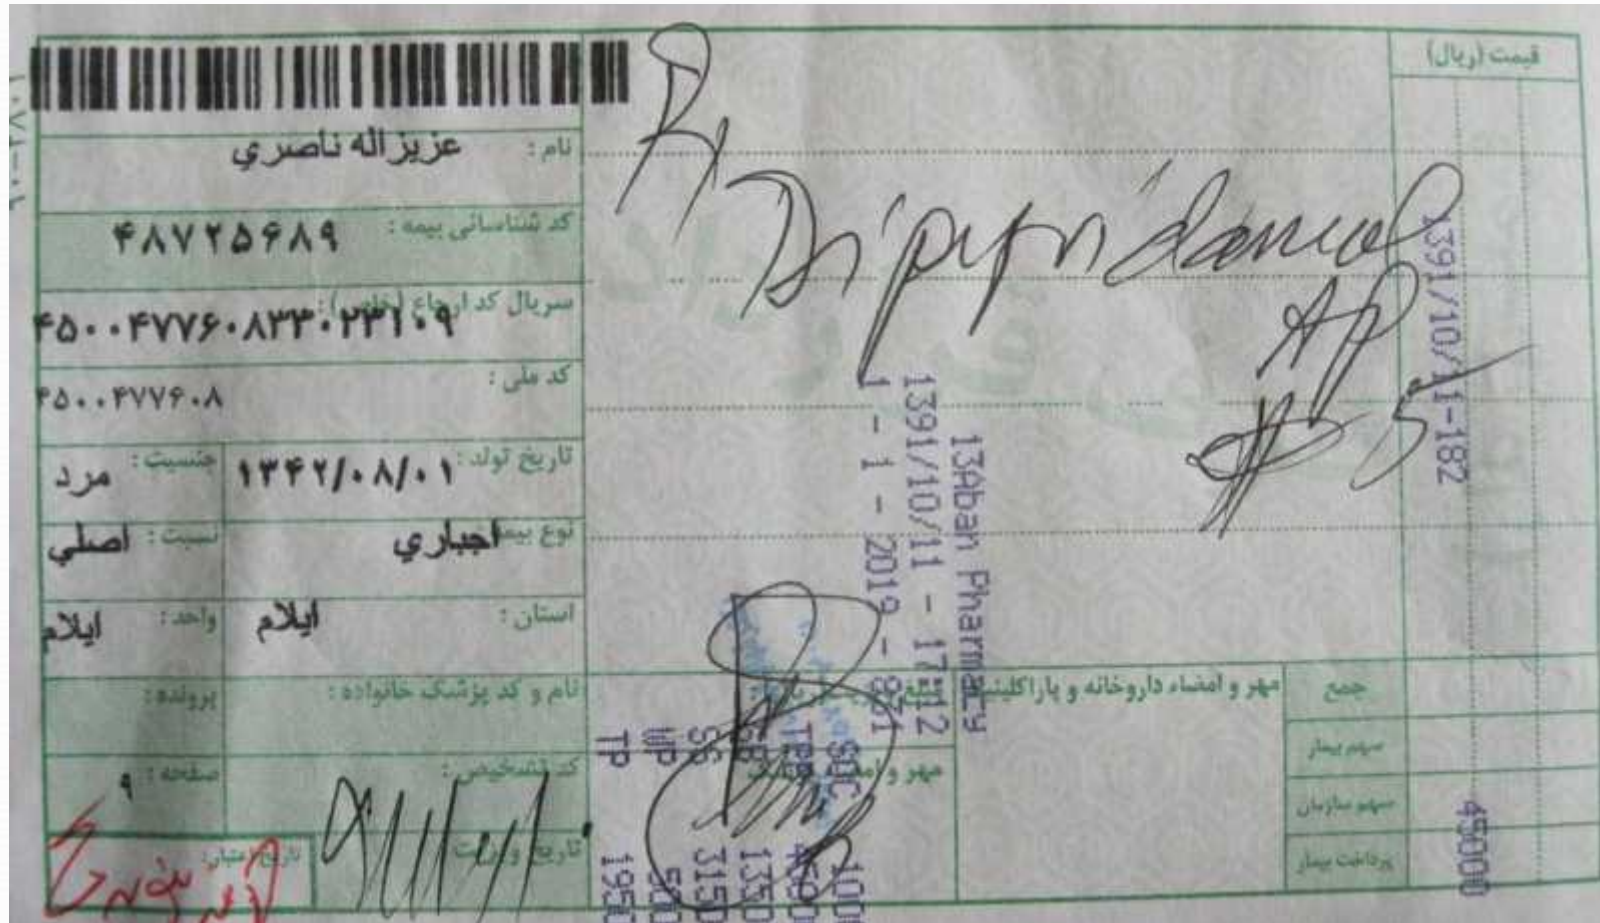 قیمت (ریال)
نام : عزیزاله ناصري
کد شناسائی بیمه : ۴۸۷۲۵۶۸۹
سریال کد ارجاع (خاص) : ۴۵۰۰۴۷۷۶۰۸۳۳۰۲۳۱۰۹
کد ملی : ۴۵۰۰۴۷۷۶۰۸
تاریخ تولد : ۱۳۴۲/۰۸/۰۱ جنسیت : مرد
نوع بیمه اجباري نسبت : اصلي
استان : ایلام واحد : ایلام
نام و کد پزشک خانواده : پرونده :
کد تشخیص : صفحه : ۹
تاریخ ویزیت تاریخ اعتبار:
Rx
Dipyridamol
1391/10/11-182
13Aban Pharmacy
1391/10/11 - 17:12
1 - 1 - 2019 - 871
SDC
TP
SS
WP
TP
3150
1350
مهر و امضاء داروخانه و پاراکلینیک
مهر و امضاء
جمع
سهم بیمار
سهم سازمان
پرداخت بیمار
45000